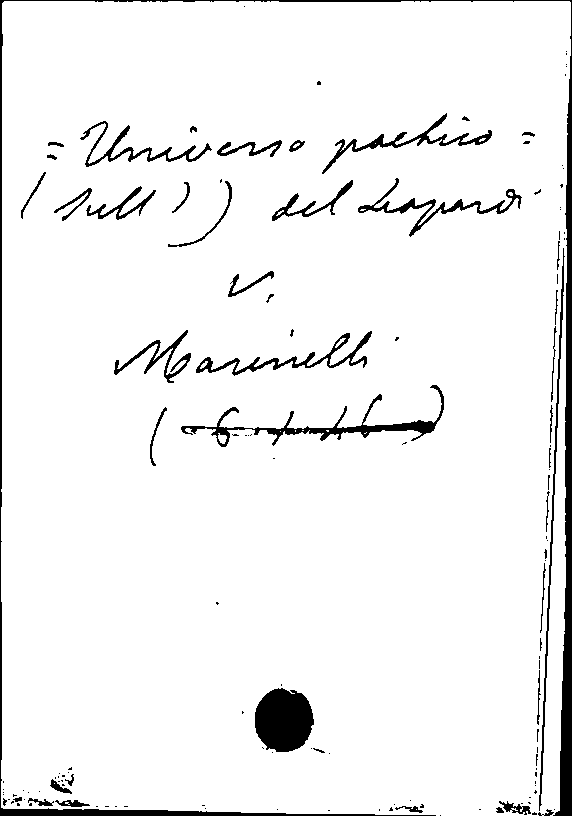 = Universo poetico =
(Sull') del Leopardi
V.
Marinelli